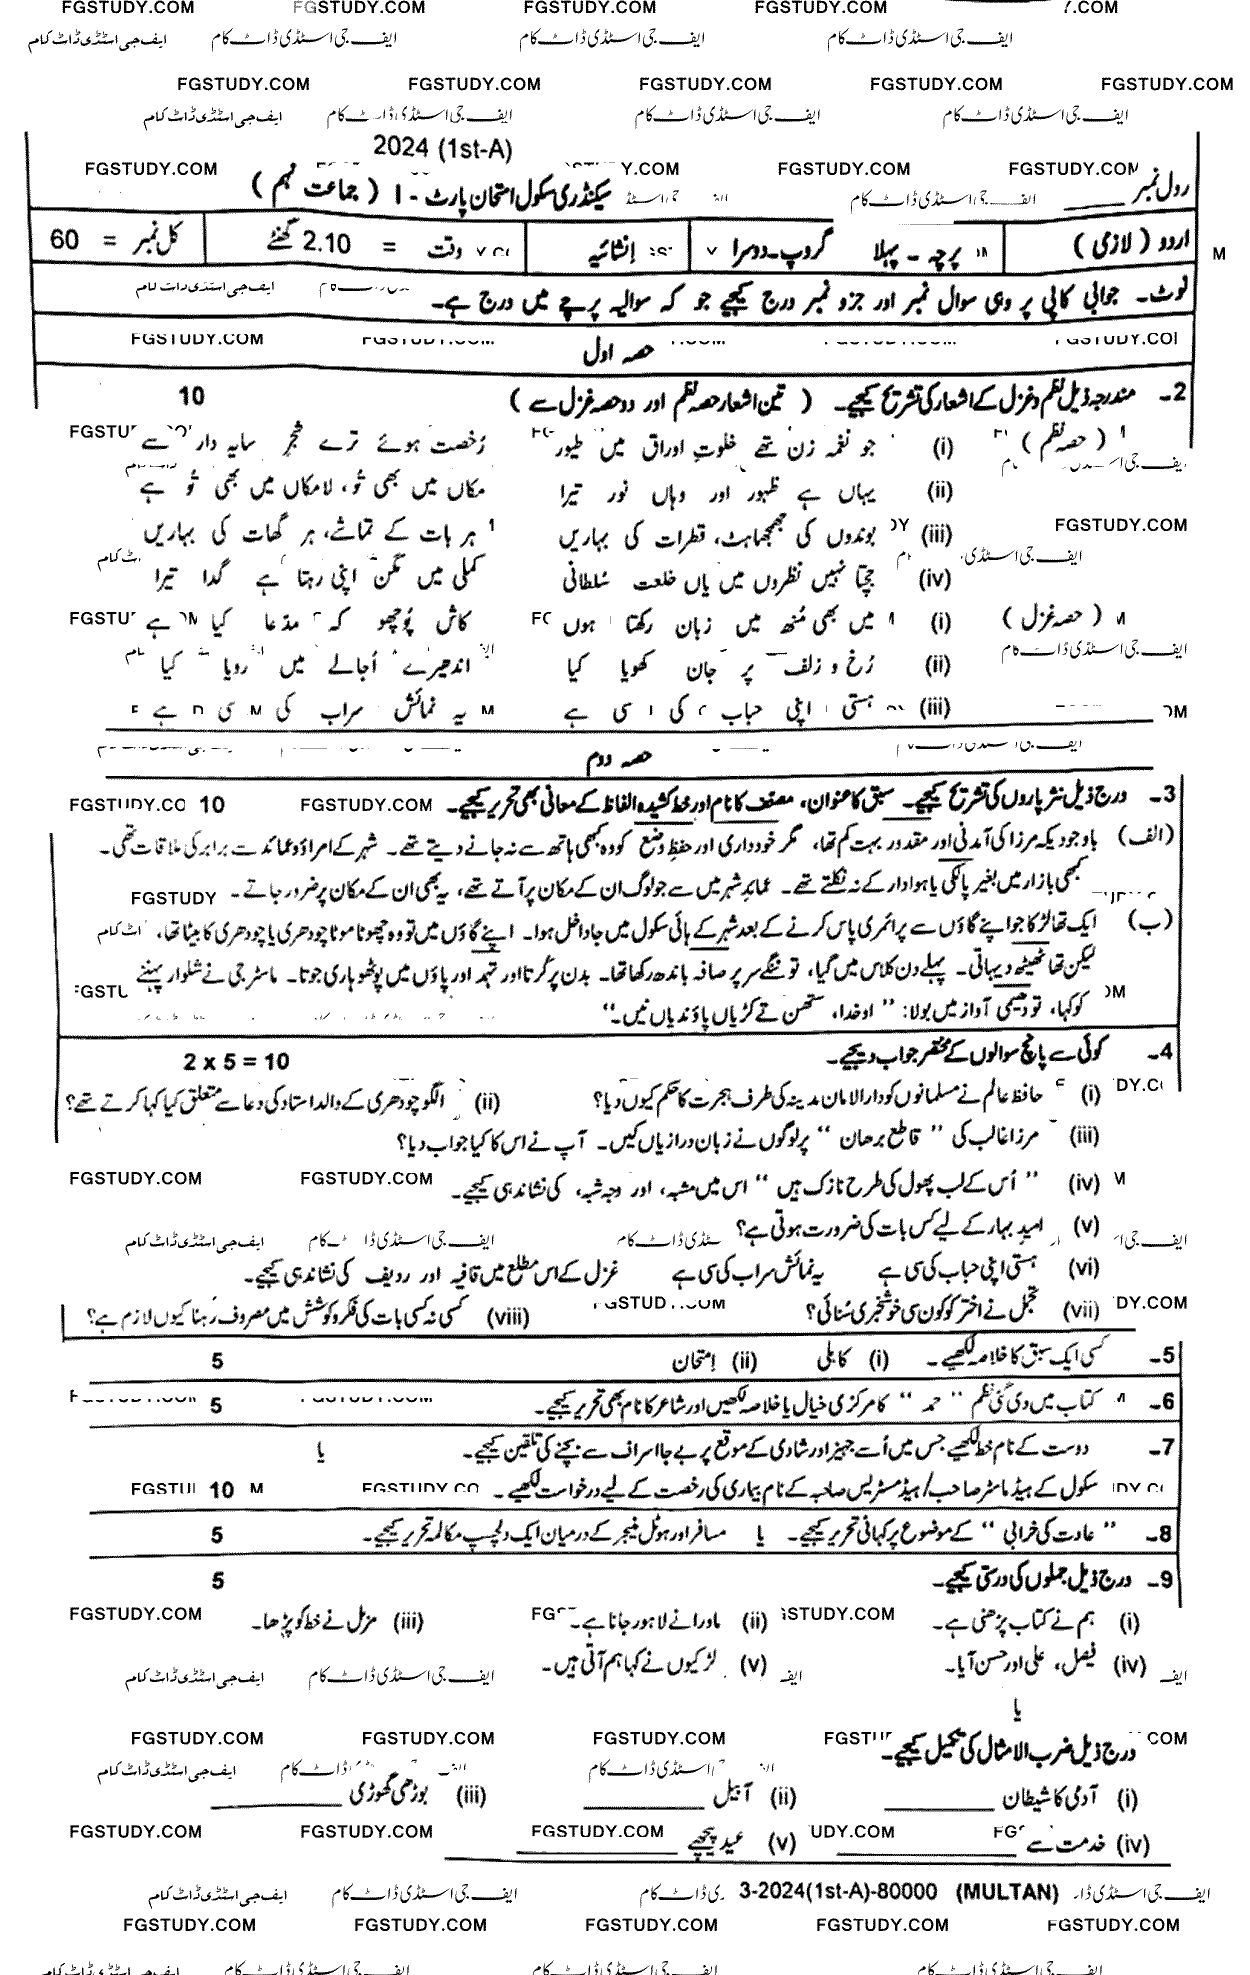 2024 (1st-A)
رول نمبر ______ سیکنڈری سکول امتحان پارٹ - I ( جماعت نہم )
اردو ( لازمی ) پرچہ - پہلا گروپ۔دوسرا اِنشائیہ وقت = 2.10 گھنٹے کل نمبر = 60
نوٹ۔ جوابی کاپی پر وہی سوال نمبر اور جزو نمبر درج کیجیے جو کہ سوالیہ پرچے میں درج ہے۔
حصہ اول
2۔ مندرجہ ذیل نظم و غزل کے اشعار کی تشریح کیجیے۔ ( تین اشعار حصہ نظم اور دو حصہ غزل سے ) 10
( حصہ نظم ) (i) جو نغمہ زن تھے خلوتِ اوراق میں طیور رُخصت ہوئے ترے شجرِ سایہ دار سے
(ii) یہاں ہے ظہور اور وہاں نور تیرا مکاں میں بھی تُو، لامکاں میں بھی تُو ہے
(iii) بوندوں کی جھمجھاہٹ، قطرات کی بہاریں ہر بات کے تماشے، ہر گھات کی بہاریں
(iv) جچتا نہیں نظروں میں یاں خلعت سُلطانی کملی میں مگن اپنی رہتا ہے گدا تیرا
( حصہ غزل ) (i) میں بھی مُنھ میں زبان رکھتا ہوں کاش پُوچھو کہ مدّعا کیا ہے
(ii) رُخ و زلف پر جان کھویا کیا اندھیرے اُجالے میں رویا کیا
(iii) ہستی اپنی حباب کی سی ہے یہ نمائش سراب کی سی ہے
حصہ دوم
3۔ درج ذیل نثر پاروں کی تشریح کیجیے۔ سبق کا عنوان، مصنف کا نام اور خط کشیدہ الفاظ کے معانی بھی تحریر کیجیے۔ 10
(الف) باوجودیکہ مرزا کی آمدنی اور مقدور بہت کم تھا، مگر خودداری اور حفظِ وضع کو وہ کبھی ہاتھ سے نہ جانے دیتے تھے۔ شہر کے امراؤ و عمائد سے برابر کی ملاقات تھی۔
کبھی بازار میں بغیر پالکی یا ہوادار کے نہ نکلتے تھے۔ عمائدِ شہر میں سے جو لوگ ان کے مکان پر آتے تھے، یہ بھی ان کے مکان پر ضرور جاتے۔
(ب) ایک تھا لڑکا جو اپنے گاؤں سے پرائمری پاس کرنے کے بعد شہر کے ہائی سکول میں جا داخل ہوا۔ اپنے گاؤں میں تو وہ چھوٹا موٹا چودھری یا چودھری کا بیٹا تھا،
لیکن تھا ٹھیٹھ دیہاتی۔ پہلے دن کلاس میں گیا، تو ننگے سر پر صافہ باندھ رکھا تھا۔ بدن پر کُرتا اور تہمد اور پاؤں میں پوٹھوہاری جوتا۔ ماسٹر جی نے شلوار پہننے
کو کہا، تو دھیمی آواز میں بولا: " اوخدا، ستھن تے کڑیاں پاؤندیاں نیں۔"
4۔ کوئی سے پانچ سوالوں کے مختصر جواب دیجیے۔ 2 x 5 = 10
(i) حافظ عالم نے مسلمانوں کو دارالامان مدینہ کی طرف ہجرت کا حکم کیوں دیا؟ (ii) الگو چودھری کے والد استاد کی دعا سے متعلق کیا کہا کرتے تھے؟
(iii) مرزا غالب کی " قاطع برھان " پر لوگوں نے زبان درازیاں کیں۔ آپ نے اس کا کیا جواب دیا؟
(iv) " اُس کے لب پھول کی طرح نازک ہیں " اس میں مشبہ، اور وجہ شبہ، کی نشاندہی کیجیے۔
(v) امیدِ بہار کے لیے کس بات کی ضرورت ہوتی ہے؟
(vi) ہستی اپنی حباب کی سی ہے یہ نمائش سراب کی سی ہے غزل کے اس مطلع میں قافیہ اور ردیف کی نشاندہی کیجیے۔
(vii) تجمل نے اختر کو کون سی خوشخبری سُنائی؟ (viii) کسی نہ کسی بات کی فکر و کوشش میں مصروف رہنا کیوں لازم ہے؟
5۔ کسی ایک سبق کا خلاصہ لکھیے۔ (i) کاہلی (ii) اِمتحان 5
6۔ کتاب میں دی گئی نظم " حمد " کا مرکزی خیال یا خلاصہ لکھیں اور شاعر کا نام بھی تحریر کیجیے۔ 5
7۔ دوست کے نام خط لکھیے جس میں اُسے جہیز اور شادی کے موقع پر بے جا اسراف سے بچنے کی تلقین کیجیے۔ یا
سکول کے ہیڈ ماسٹر صاحب/ہیڈ مسٹریس صاحبہ کے نام بیماری کی رخصت کے لیے درخواست لکھیے۔ 10
8۔ " عادت کی خرابی " کے موضوع پر کہانی تحریر کیجیے۔ یا مسافر اور ہوٹل منیجر کے درمیان ایک دلچسپ مکالمہ تحریر کیجیے۔ 5
9۔ درج ذیل جملوں کی درستی کیجیے۔ 5
(i) ہم نے کتاب پڑھنی ہے۔ (ii) ماورا نے لاہور جانا ہے۔ (iii) مزمل نے خط کو پڑھا۔
(iv) فیصل، علی اور حسن آیا۔ (v) لڑکیوں نے کہا ہم آتی ہیں۔
یا
درج ذیل ضرب الامثال کی تکمیل کیجیے۔
(i) آدمی کا شیطان ______ (ii) آ بیل ______ (iii) بوڑھی گھوڑی ______
(iv) خدمت سے ______ (v) عید پیچھے ______
3-2024(1st-A)-80000 (MULTAN)